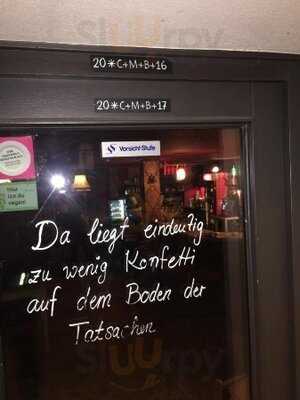 20*C+M+B+16
20*C+M+B+17
Vorsicht Stufe
Da liegt eindeutig
zu wenig Konfetti
auf dem Boden der
Tatsachen